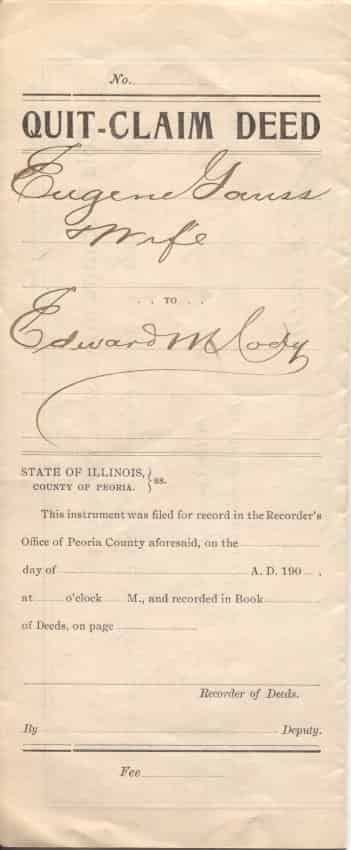 No.
QUIT-CLAIM DEED
Eugene Gauss
& Wife
. . TO . .
Edward M Cody
STATE OF ILLINOIS, } ss.
COUNTY OF PEORIA.
This instrument was filed for record in the Recorder's
Office of Peoria County aforesaid, on the
day of A. D. 190 ,
at o'clock M., and recorded in Book
of Deeds, on page
Recorder of Deeds.
By Deputy.
Fee